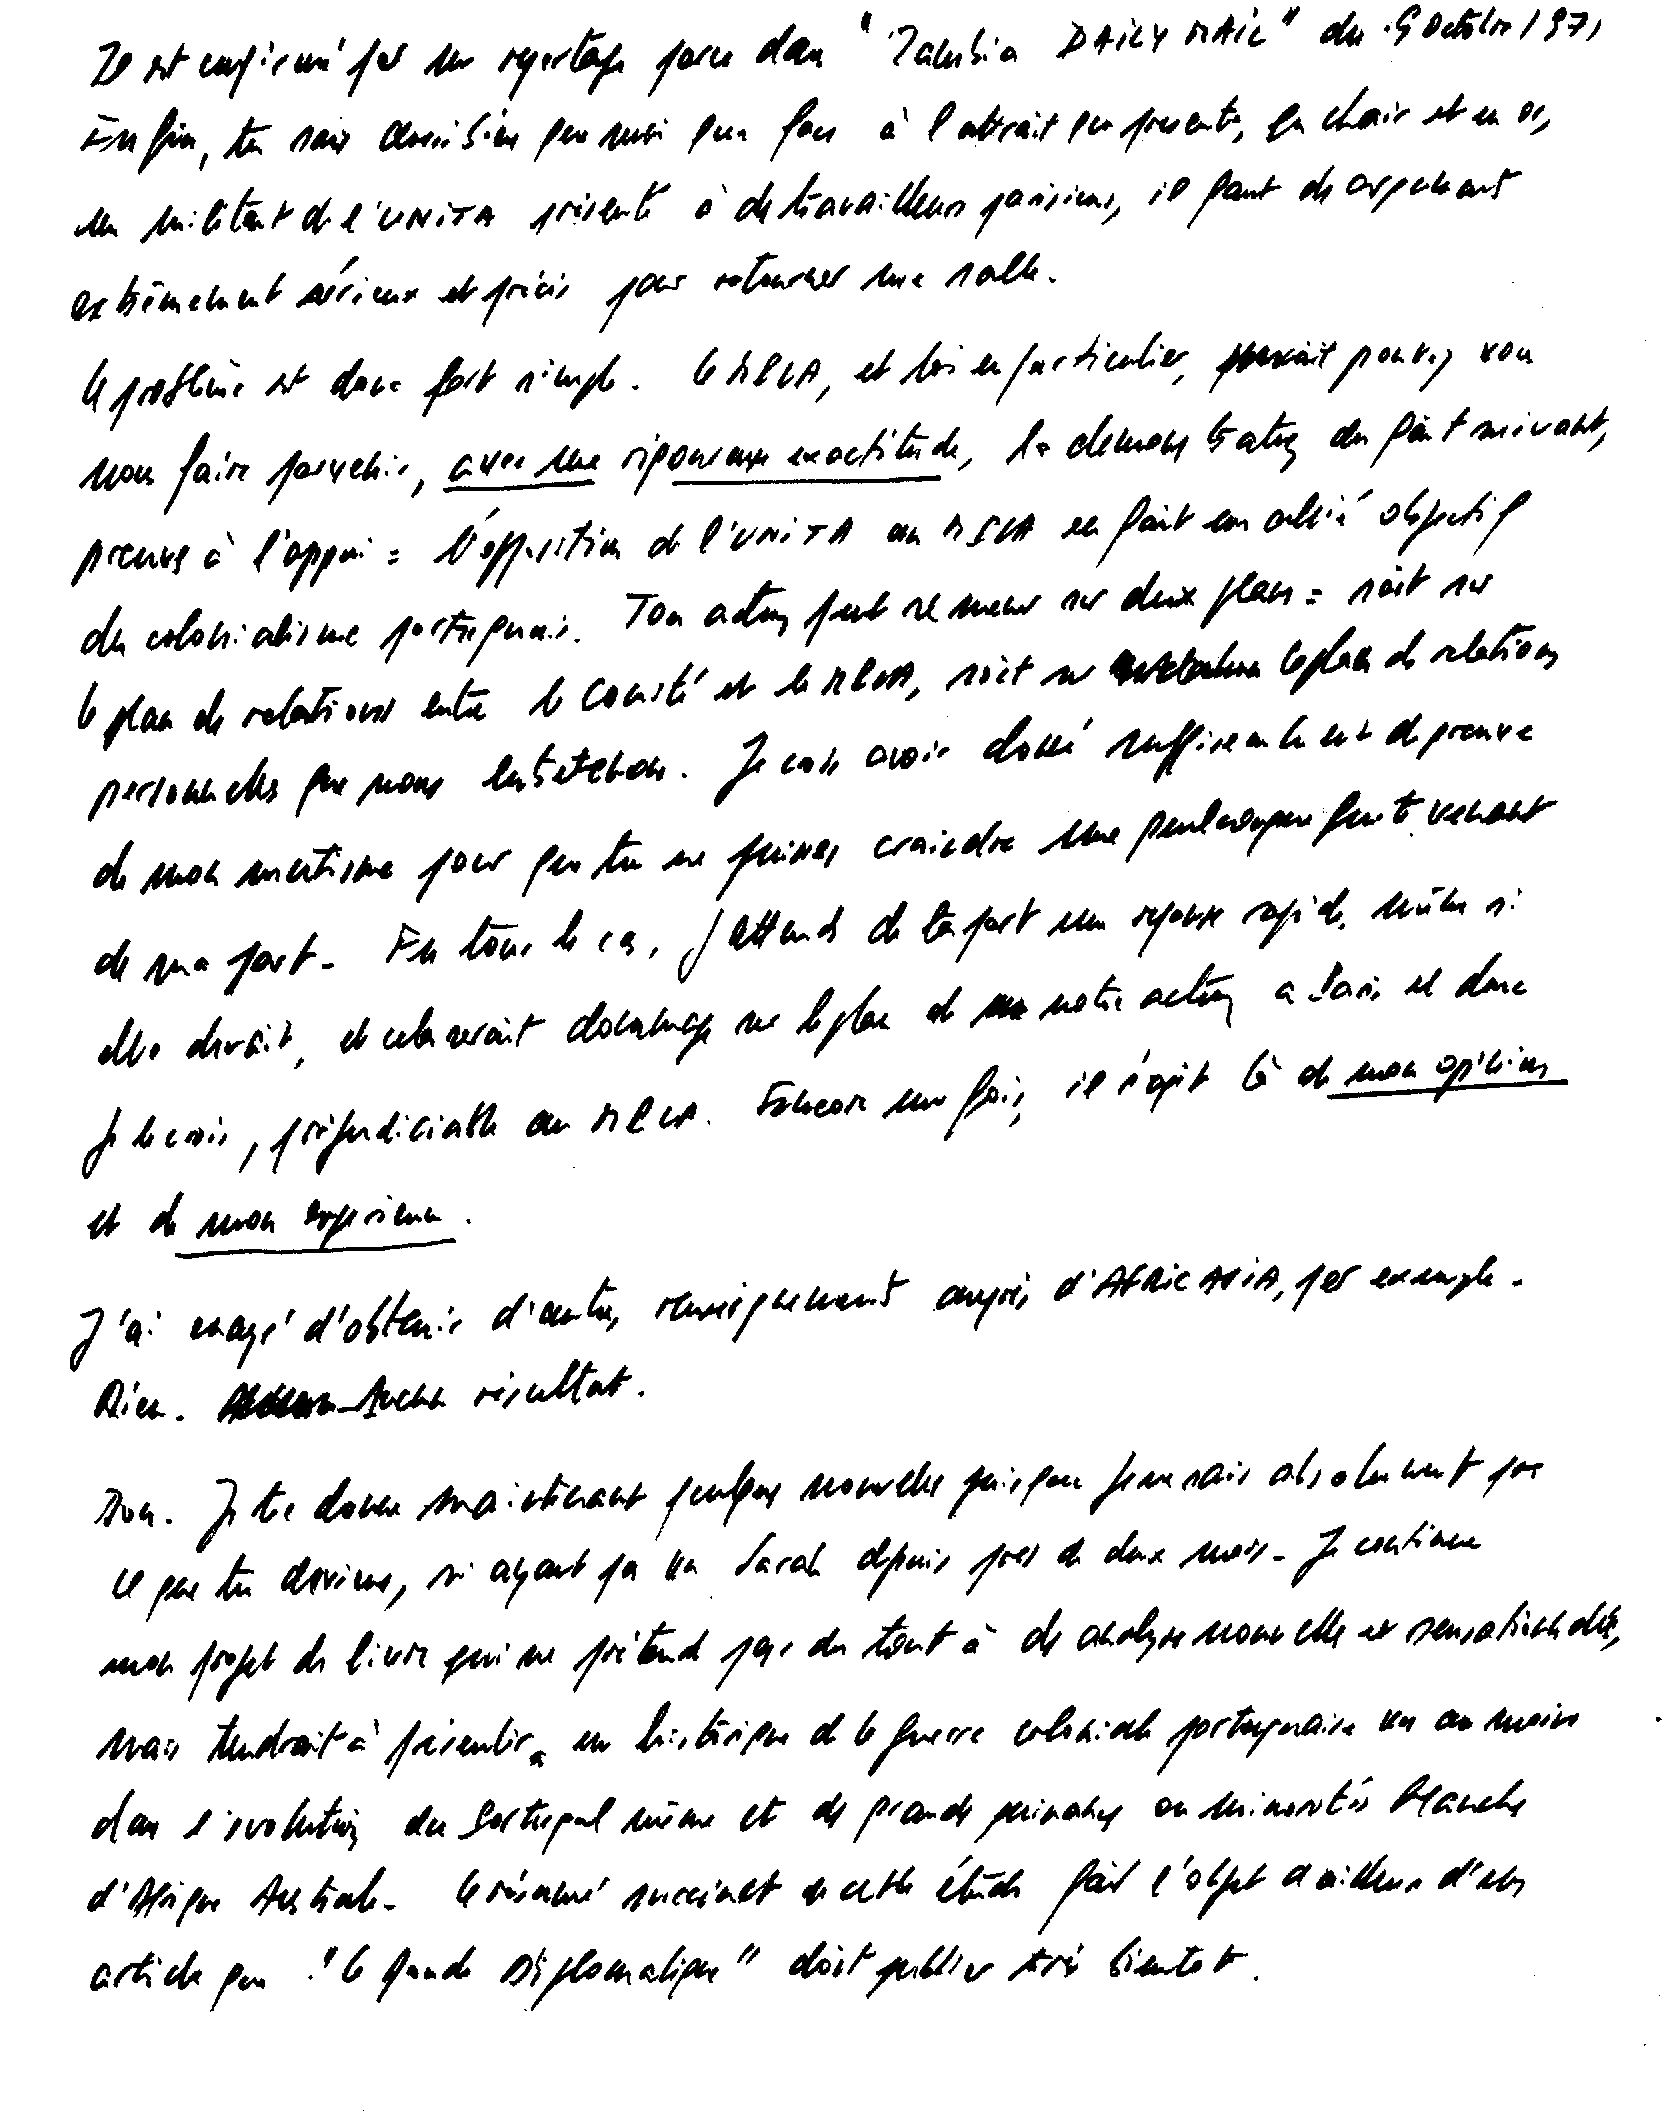 Il est confirmé par un reportage paru dans "Zambia DAILY MAIL" du 9 Octobre 1971
Enfin, tu sais aussi bien que moi que face à l'attrait que présente, en chair et en os,
un militant de l'UNITA présenté à des travailleurs parisiens, il faut des arguments
extrêmement sérieux et précis pour retourner une salle.
Le problème est donc fort simple. Le MPLA, et toi en particulier, pouvez vous
nous faire parvenir, avec une rigoureuse exactitude, la démonstration du fait suivant,
preuves à l'appui = l'opposition de l'UNITA au MPLA en fait un allié objectif
du colonialisme portugais. Ton action peut se mener sur deux plans = soit sur
le plan des relations entre le Comité et le MPLA, soit sur le plan des relations
personnelles que nous entretenons. Je crois avoir donné suffisamment de preuves
de mon mutisme pour que tu ne puisses craindre une quelconque fuite venant
de ma part. En tous les cas, j'attends de ta part une réponse rapide, même si
elle devait, et cela serait dommage sur le plan de notre action à Paris et donc
je le crois, préjudiciable au MPLA. Encore une fois, il s'agit là de mon opinion
et de mon expérience.
J'ai essayé d'obtenir d'autres renseignements auprès d'AFRICASIA, par exemple.
Rien. Aucun résultat.
Bon. Je te donne maintenant quelques nouvelles puisque je ne sais absolument pas
ce que tu deviens, n'ayant pas vu Sarah depuis près de deux mois. Je continue
mon projet de livre qui ne prétend pas du tout à des analyses nouvelles et sensationnelles,
mais tendrait à présenter un historique de la guerre coloniale portugaise vu au moins
dans l'évolution du Portugal même et des grandes puissances ou minorités blanches
d'Afrique Australe. Le résumé succinct de cette étude fait l'objet d'ailleurs d'un
article que "le Monde Diplomatique" doit publier très bientôt.